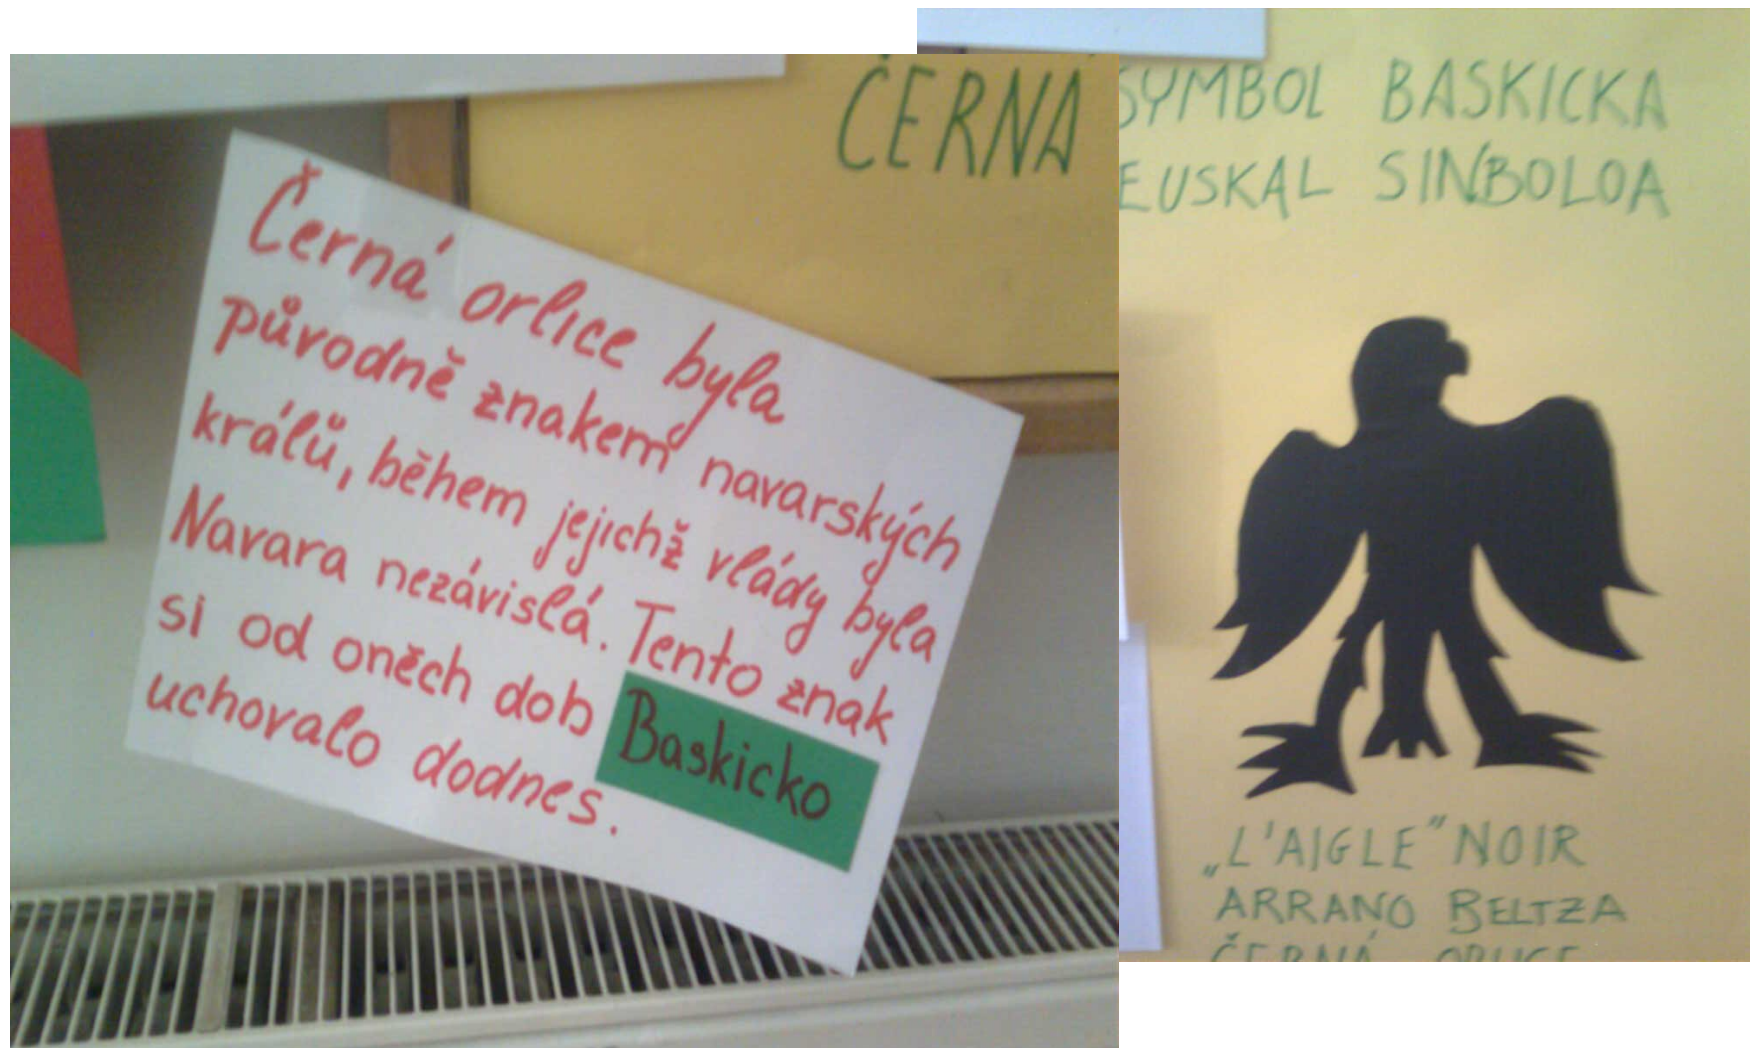 ČERNÁ
Černá orlice byla
původně znakem navarských
králů, během jejichž vlády byla
Navara nezávislá. Tento znak
si od oněch dob Baskicko
uchovalo dodnes.
SYMBOL BASKICKA
EUSKAL SINBOLOA
„L'AIGLE" NOIR
ARRANO BELTZA
ČERNÁ ORLICE